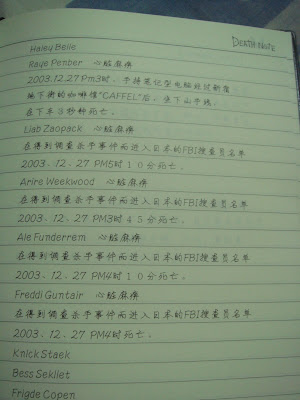 DEATH NOTE
Haley Belle
Raye Penber 心脏麻痹
2003.12.27 Pm3时,手持笔记型电脑经过新宿
地下街的咖啡馆"CAFFEL"后,坐下山手线,
在下车3秒钟死亡。
Liab Zaopack 心脏麻痹
在得到调查杀手事件而进入日本的FBI搜查员名单
2003、12、27 PM5时10分死亡.
Arire Weekwood 心脏麻痹
在得到调查杀手事件而进入日本的FBI搜查员名单
2003、12、27 PM3时45分死亡.
Ale Funderrem 心脏麻痹
在得到调查杀手事件而进入日本的FBI搜查员名单
2003、12、27 PM4时10分死亡.
Freddi Guntair 心脏麻痹
在得到调查杀手事件而进入日本的FBI搜查员名单
2003、12、27 PM4时死亡.
Knick Staek
Bess Sekllet
Frigde Copen